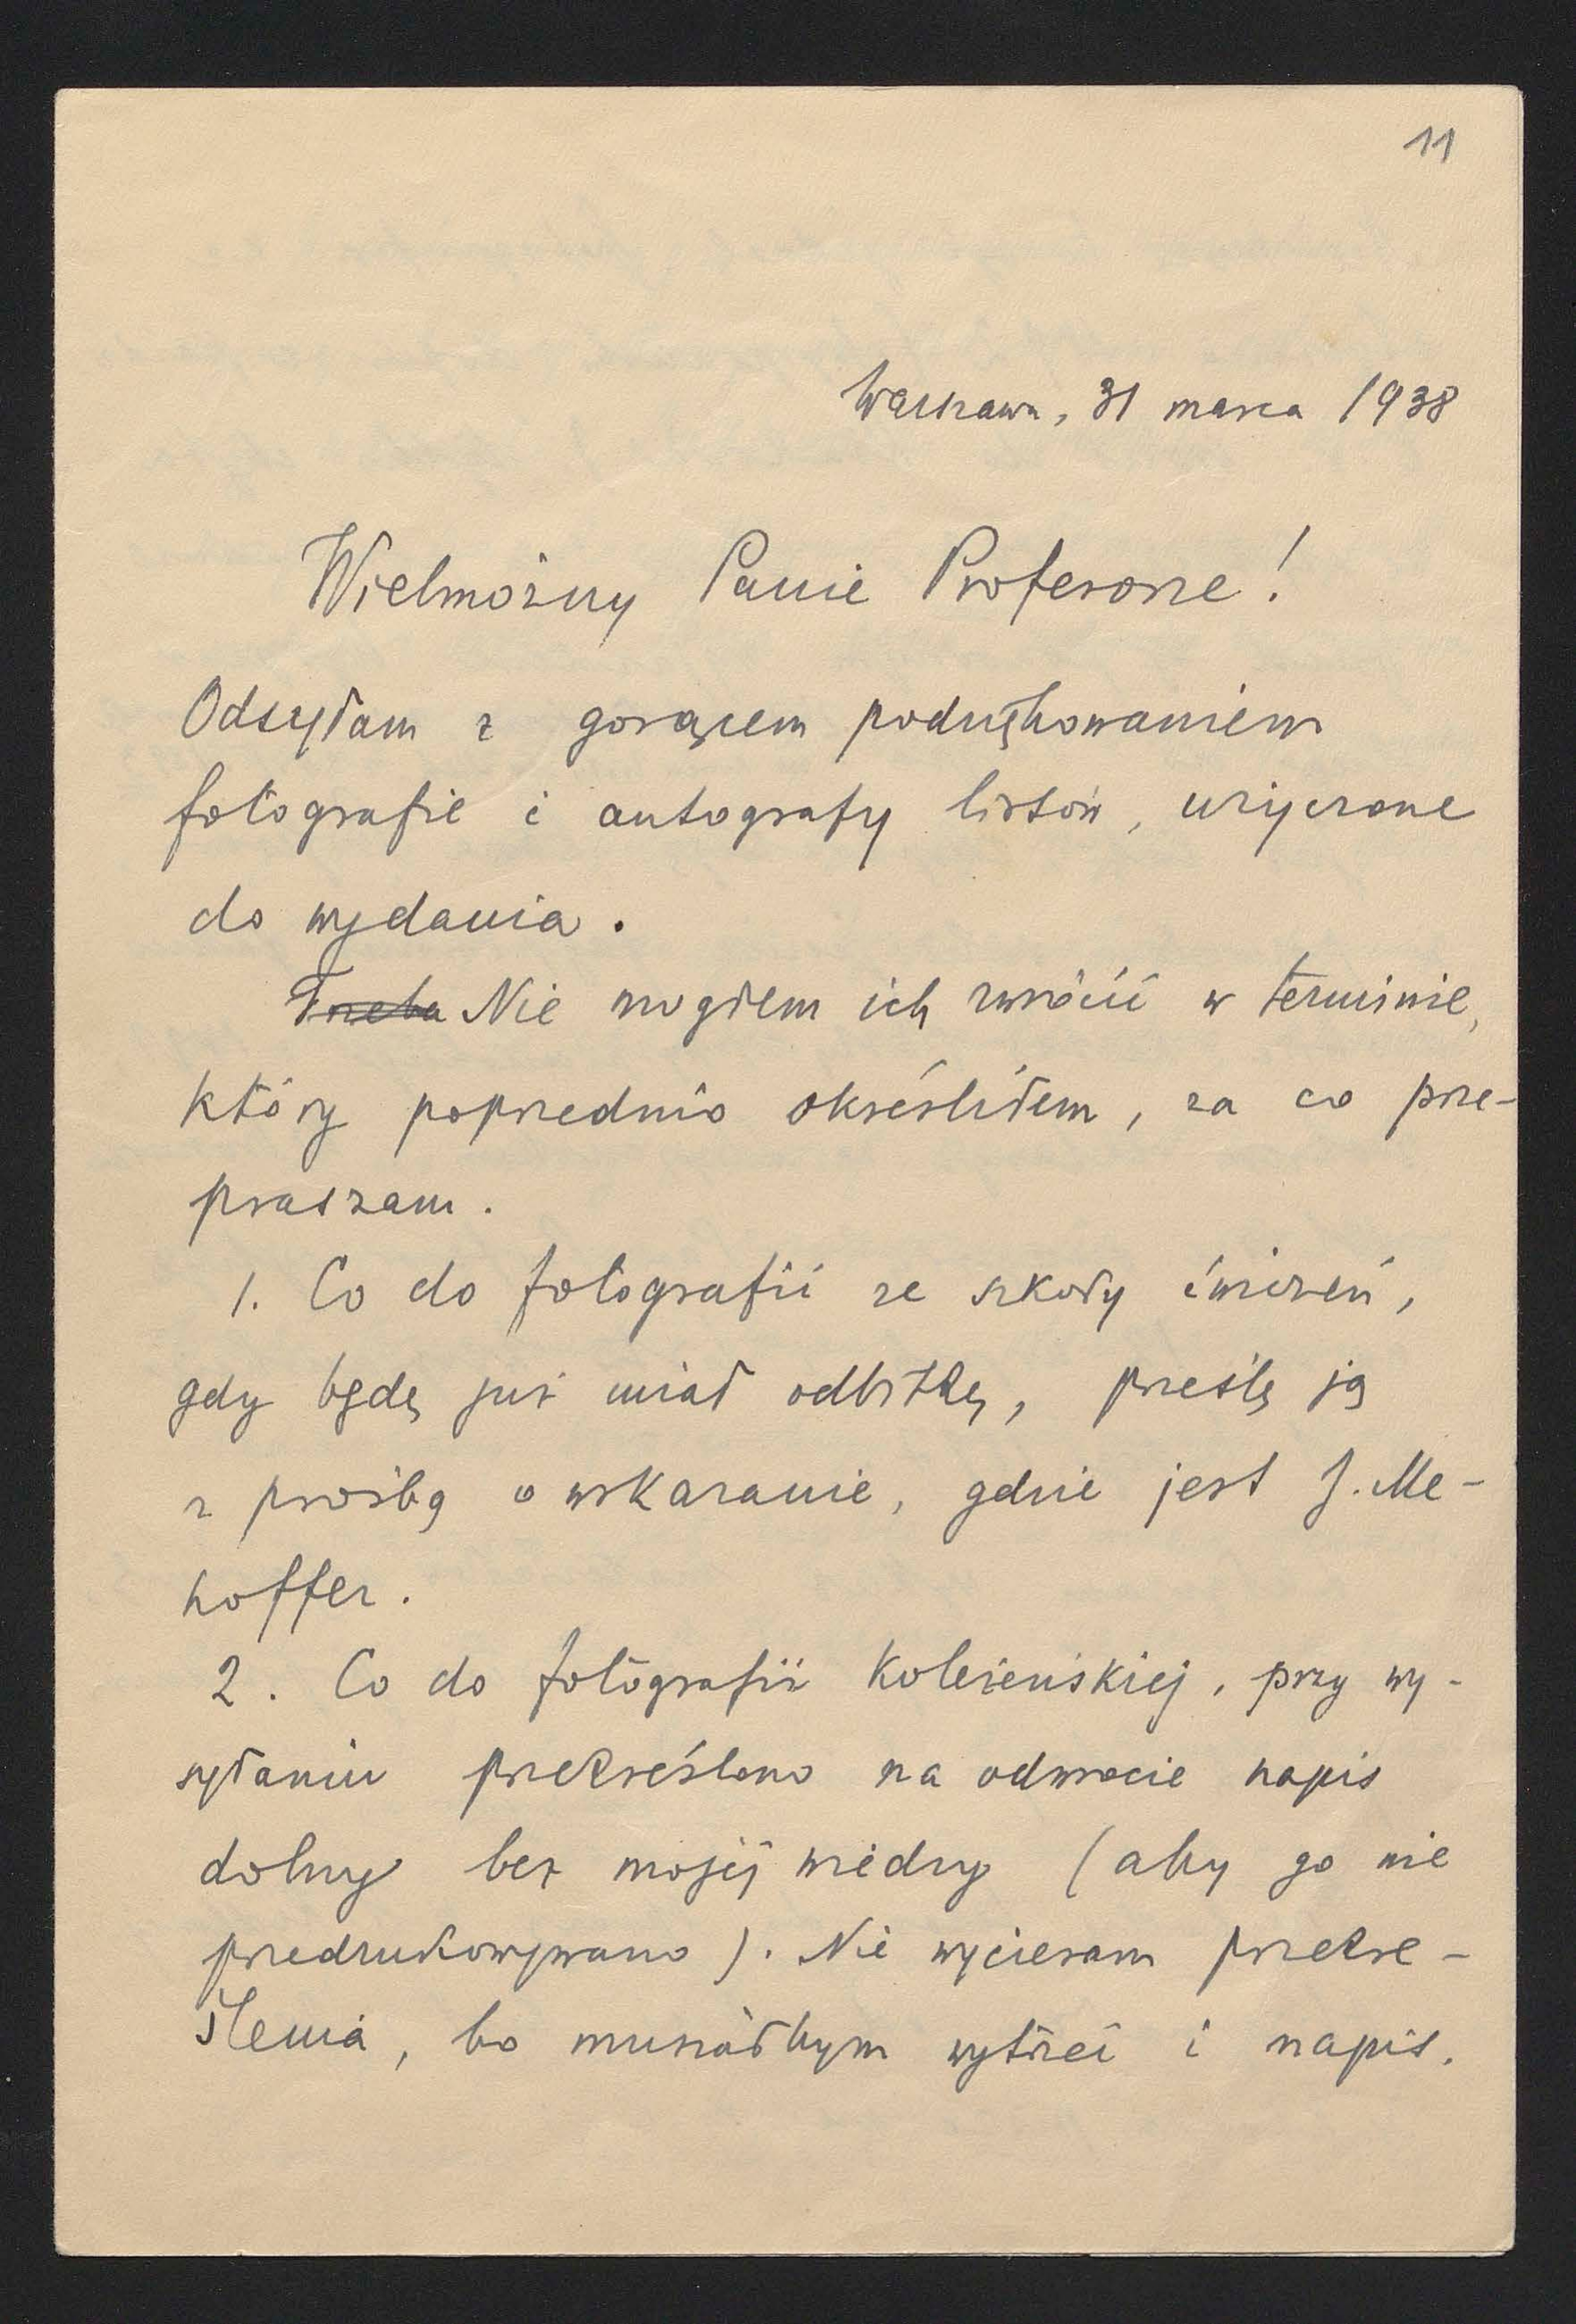 11
Warszawa, 31 marca 1938
Wielmożny Panie Profesorze!
Odsyłam z gorącem podziękowaniem
fotografie i autografy listów, użyczone
do wydania.
Trzeba Nie mogłem ich zwrócić w terminie,
który poprzednio określiłem, za co prze-
praszam.
1. Co do fotografii ze szkoły ćwiczeń,
gdy będę już miał odbitkę, prześlę ją
z prośbą o wskazanie, gdzie jest J. Me-
hoffer.
2. Co do fotografii koleżeńskiej, przy wy-
syłaniu przekreślono na odwrocie napis
dolny bez mojej wiedzy (aby go nie
przedrukowywano). Nie wycieram przekre-
ślenia, bo musiałbym wytrzeć i napis.